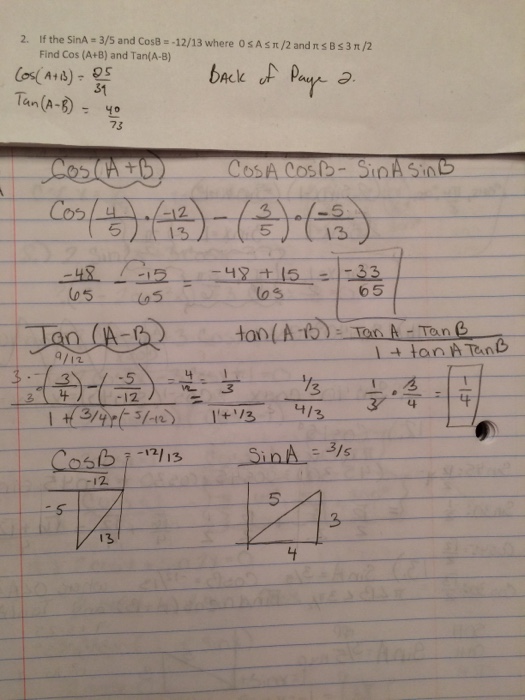 2. If the SinA = 3/5 and CosB = -12/13 where 0 ≤ A ≤ π /2 and π ≤ B ≤ 3 π /2
Find Cos (A+B) and Tan(A-B)
Cos(A+B) = 25/39
Back of Page 2.
Tan(A-B) = 40/73
Cos(A+B) CosA CosB - SinA SinB
Cos (4/5) · (-12/13) - (3/5) · (-5/13)
-48/65 - -15/65 = -48 + 15/65 = -33/65
Tan (A-B) tan(A-B) = Tan A - Tan B / 1 + tan A Tan B
9/12
3 · 3 (3/4) - (-5/-12) / 1 + (3/4) · (-5/-12) = 4/12 = 1/3 / 1 + 1/3 1/3 / 4/3 1/3 · 3/4 = 1/4
CosB = -12/13 SinA = 3/5
-12
-5 5 3
13
4